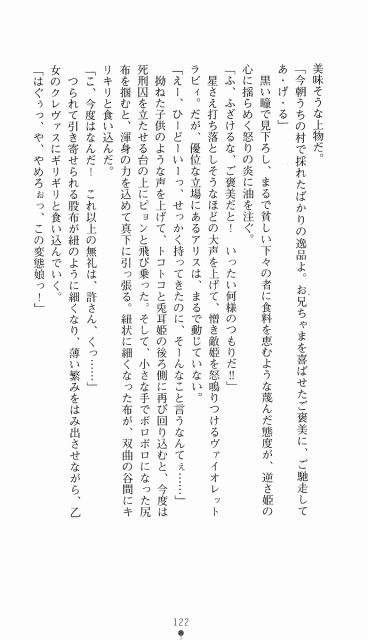 美味そうな上物だ。
「今朝うちの村で採れたばかりの逸品よ。お兄ちゃまを喜ばせたご褒美に、ご馳走して
あ・げ・る」
黒い瞳で見下ろし、まるで貧しい下々の者に食料を恵むような蔑んだ態度が、逆さ姫の
心に揺らめく怒りの炎に油を注ぐ。
「ふ、ふざけるな、ご褒美だと！　いったい何様のつもりだ!!」
星さえ打ち落としそうなほどの大声を上げて、憎き敵姫を怒鳴りつけるヴァイオレット
ラビィ。だが、優位な立場にあるアリスは、まるで動じていない。
「えー、ひーどーいーっ、せっかく持ってきたのに、そーんなこと言うなんてぇ……」
拗ねた子供のような声を上げて、トコトコと兎耳姫の後ろ側に再び回り込むと、今度は
死刑囚を立たせる台の上にピョンと飛び乗った。そして、小さな手でボロボロになった尻
布を掴むと、渾身の力を込めて真下に引っ張る。紐状に細くなった布が、双曲の谷間にキ
リキリと食い込んだ。
「こ、今度はなんだ！　これ以上の無礼は、許さん、くっ……」
つられて引き寄せられる股布が紐のように細くなり、薄い繁みをはみ出させながら、乙
女のクレヴァスにギリギリと食い込んでいく。
「はぐぅっ、や、やめろぉっ、この変態娘っ！」
122